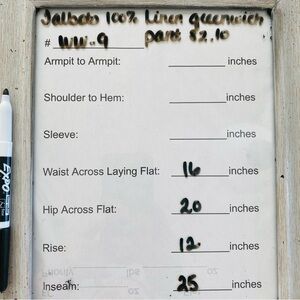 Talbots 100% Linen greenwich
# WW-9 pant $2.10
Armpit to Armpit: inches
Shoulder to Hem: inches
Sleeve: inches
Waist Across Laying Flat: 16 inches
Hip Across Flat: 20 inches
Rise: 12 inches
Inseam: 25 inches
EXPO